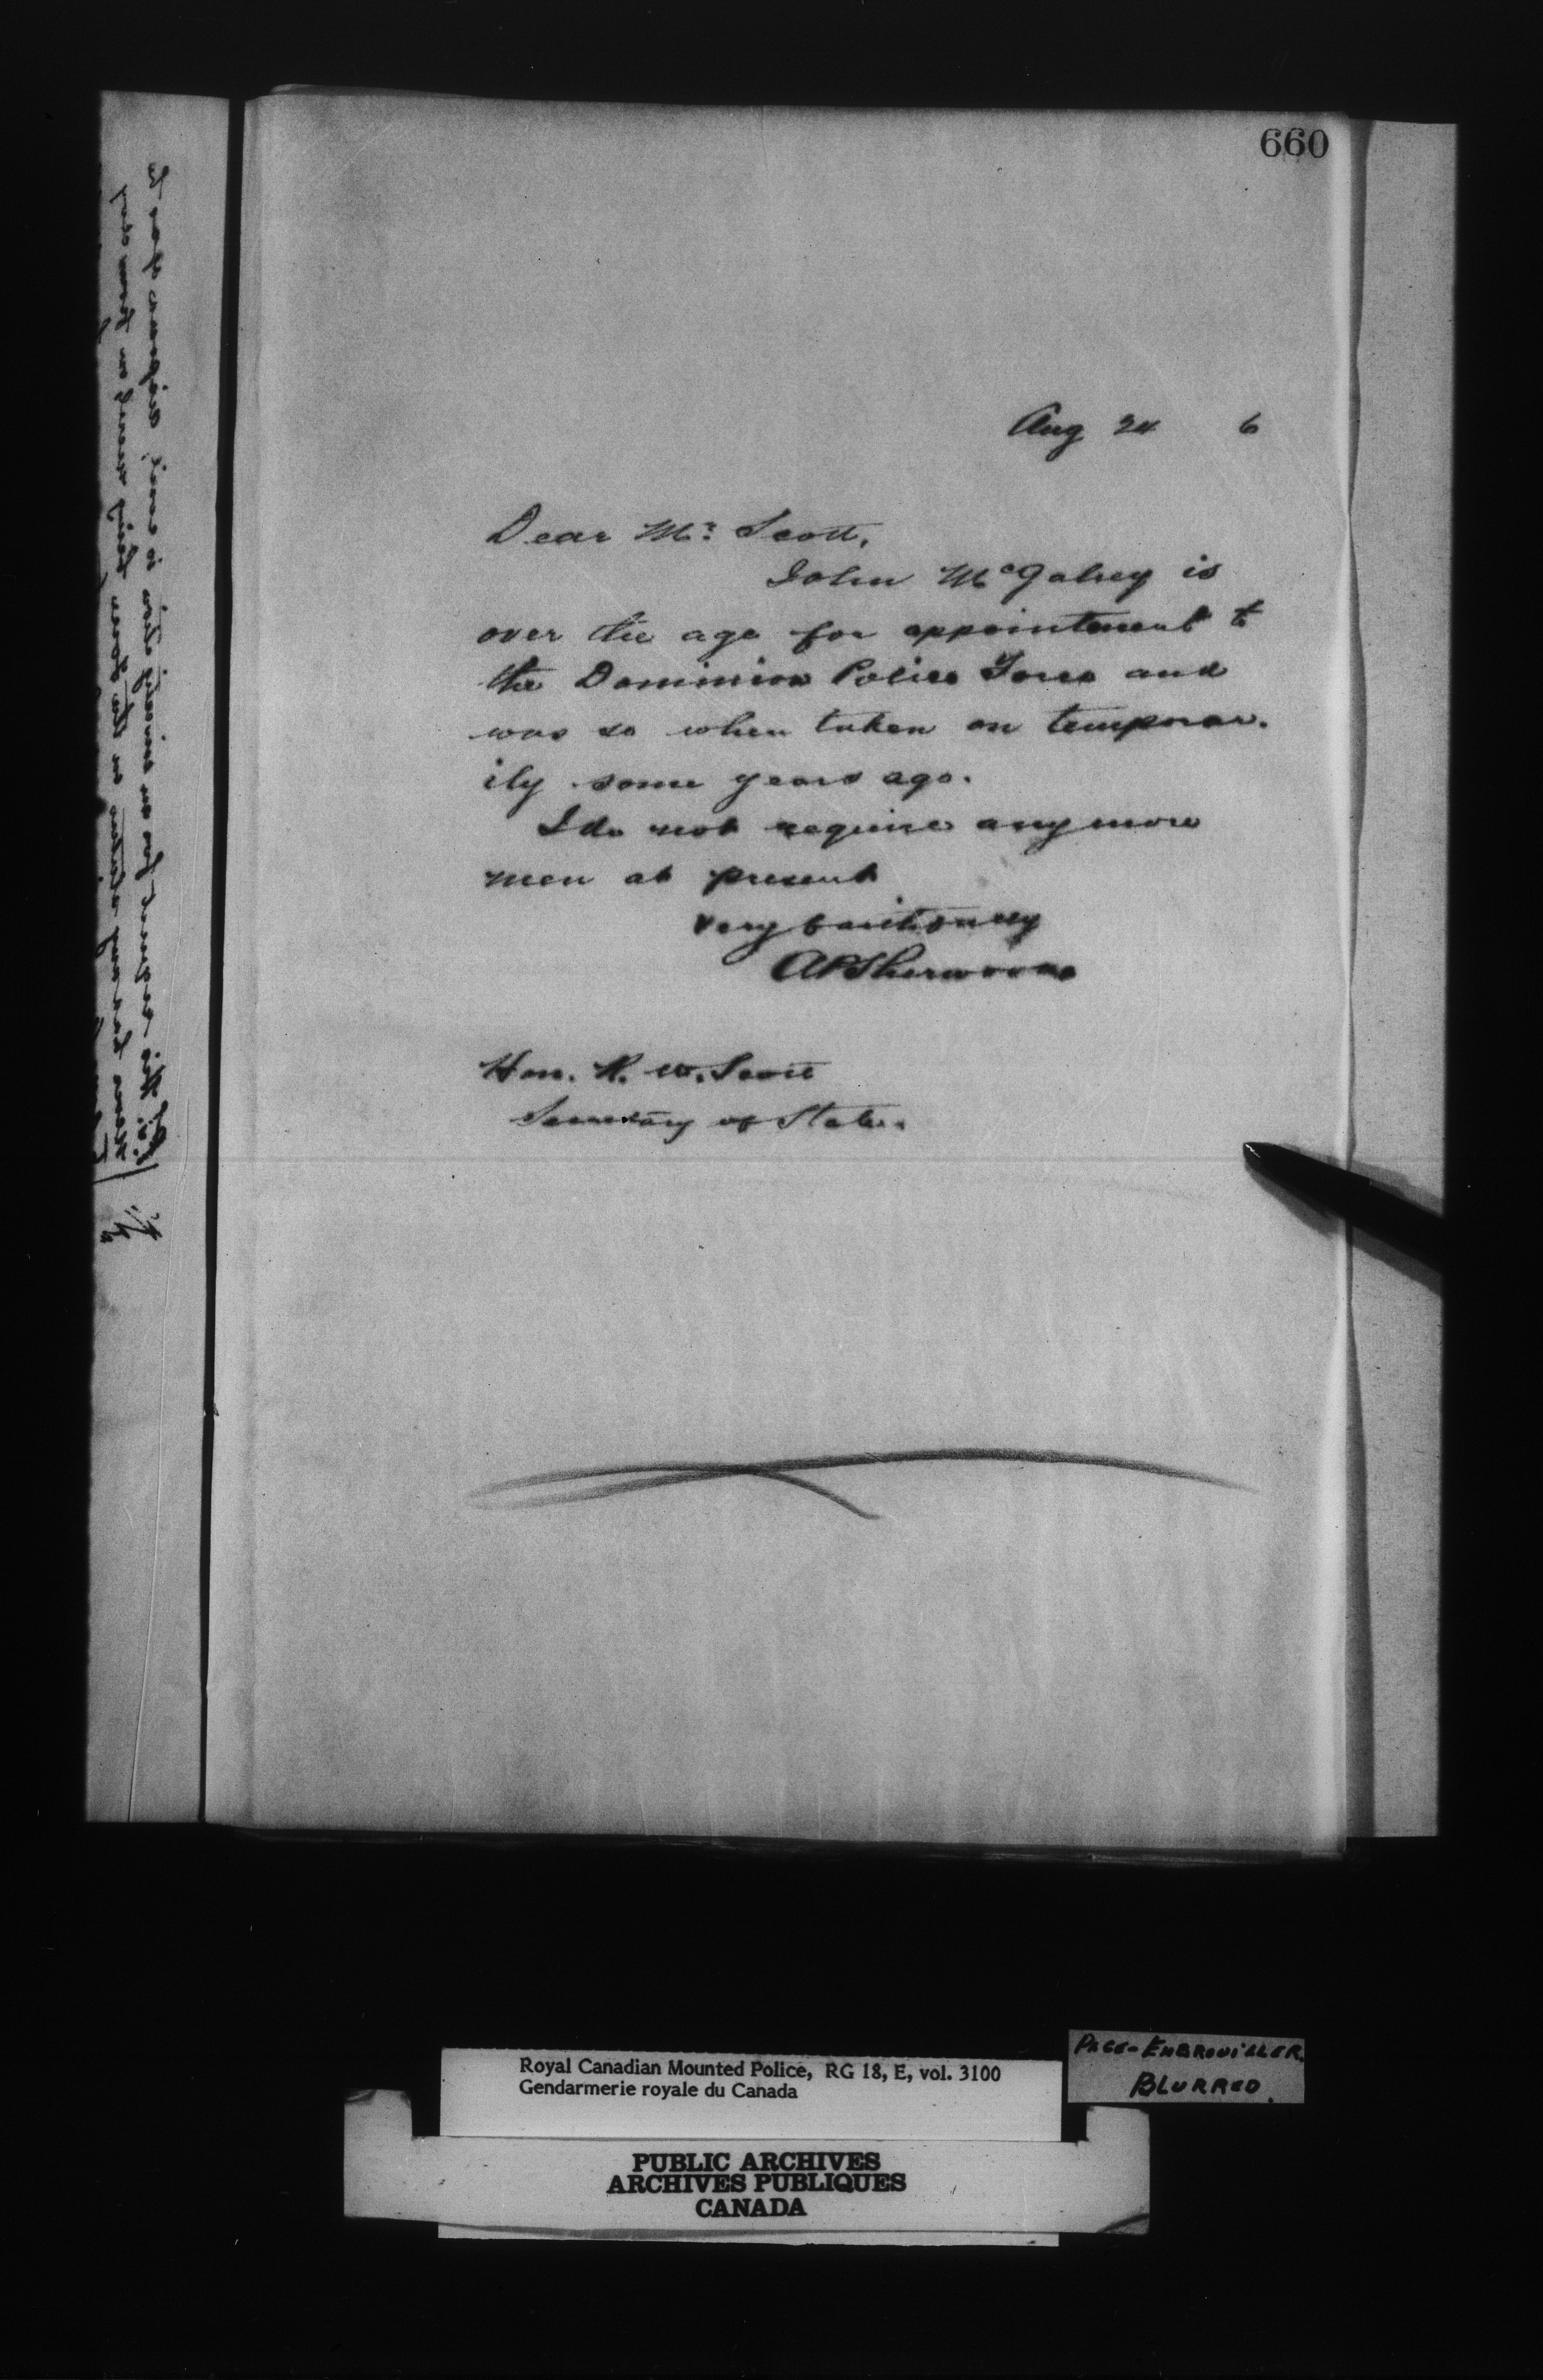 660
Aug 24 6
Dear Mr. Scott,
John McGahey is
over the age for appointment to
the Dominion Police Force and
was so when taken on temporar-
ily some years ago.
I do not require any more
men at present
Very faithfully
APSherwood
Hon. R. W. Scott
Secretary of State.
Royal Canadian Mounted Police, RG 18, E, vol. 3100
Gendarmerie royale du Canada
PAGE-EMBROUILLER.
BLURRED.
PUBLIC ARCHIVES
ARCHIVES PUBLIQUES
CANADA